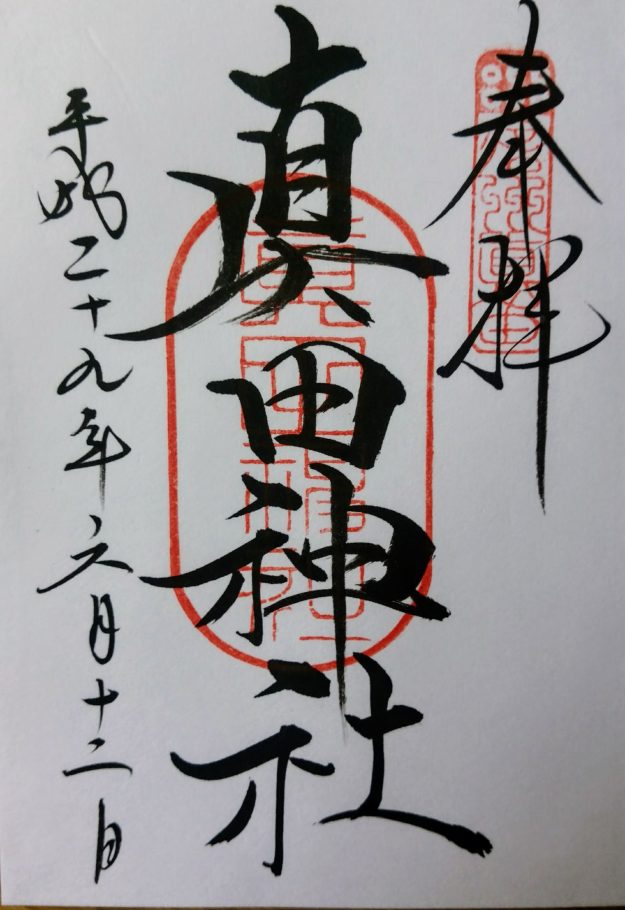 奉拝
眞田神社
平成二十九年六月十二日